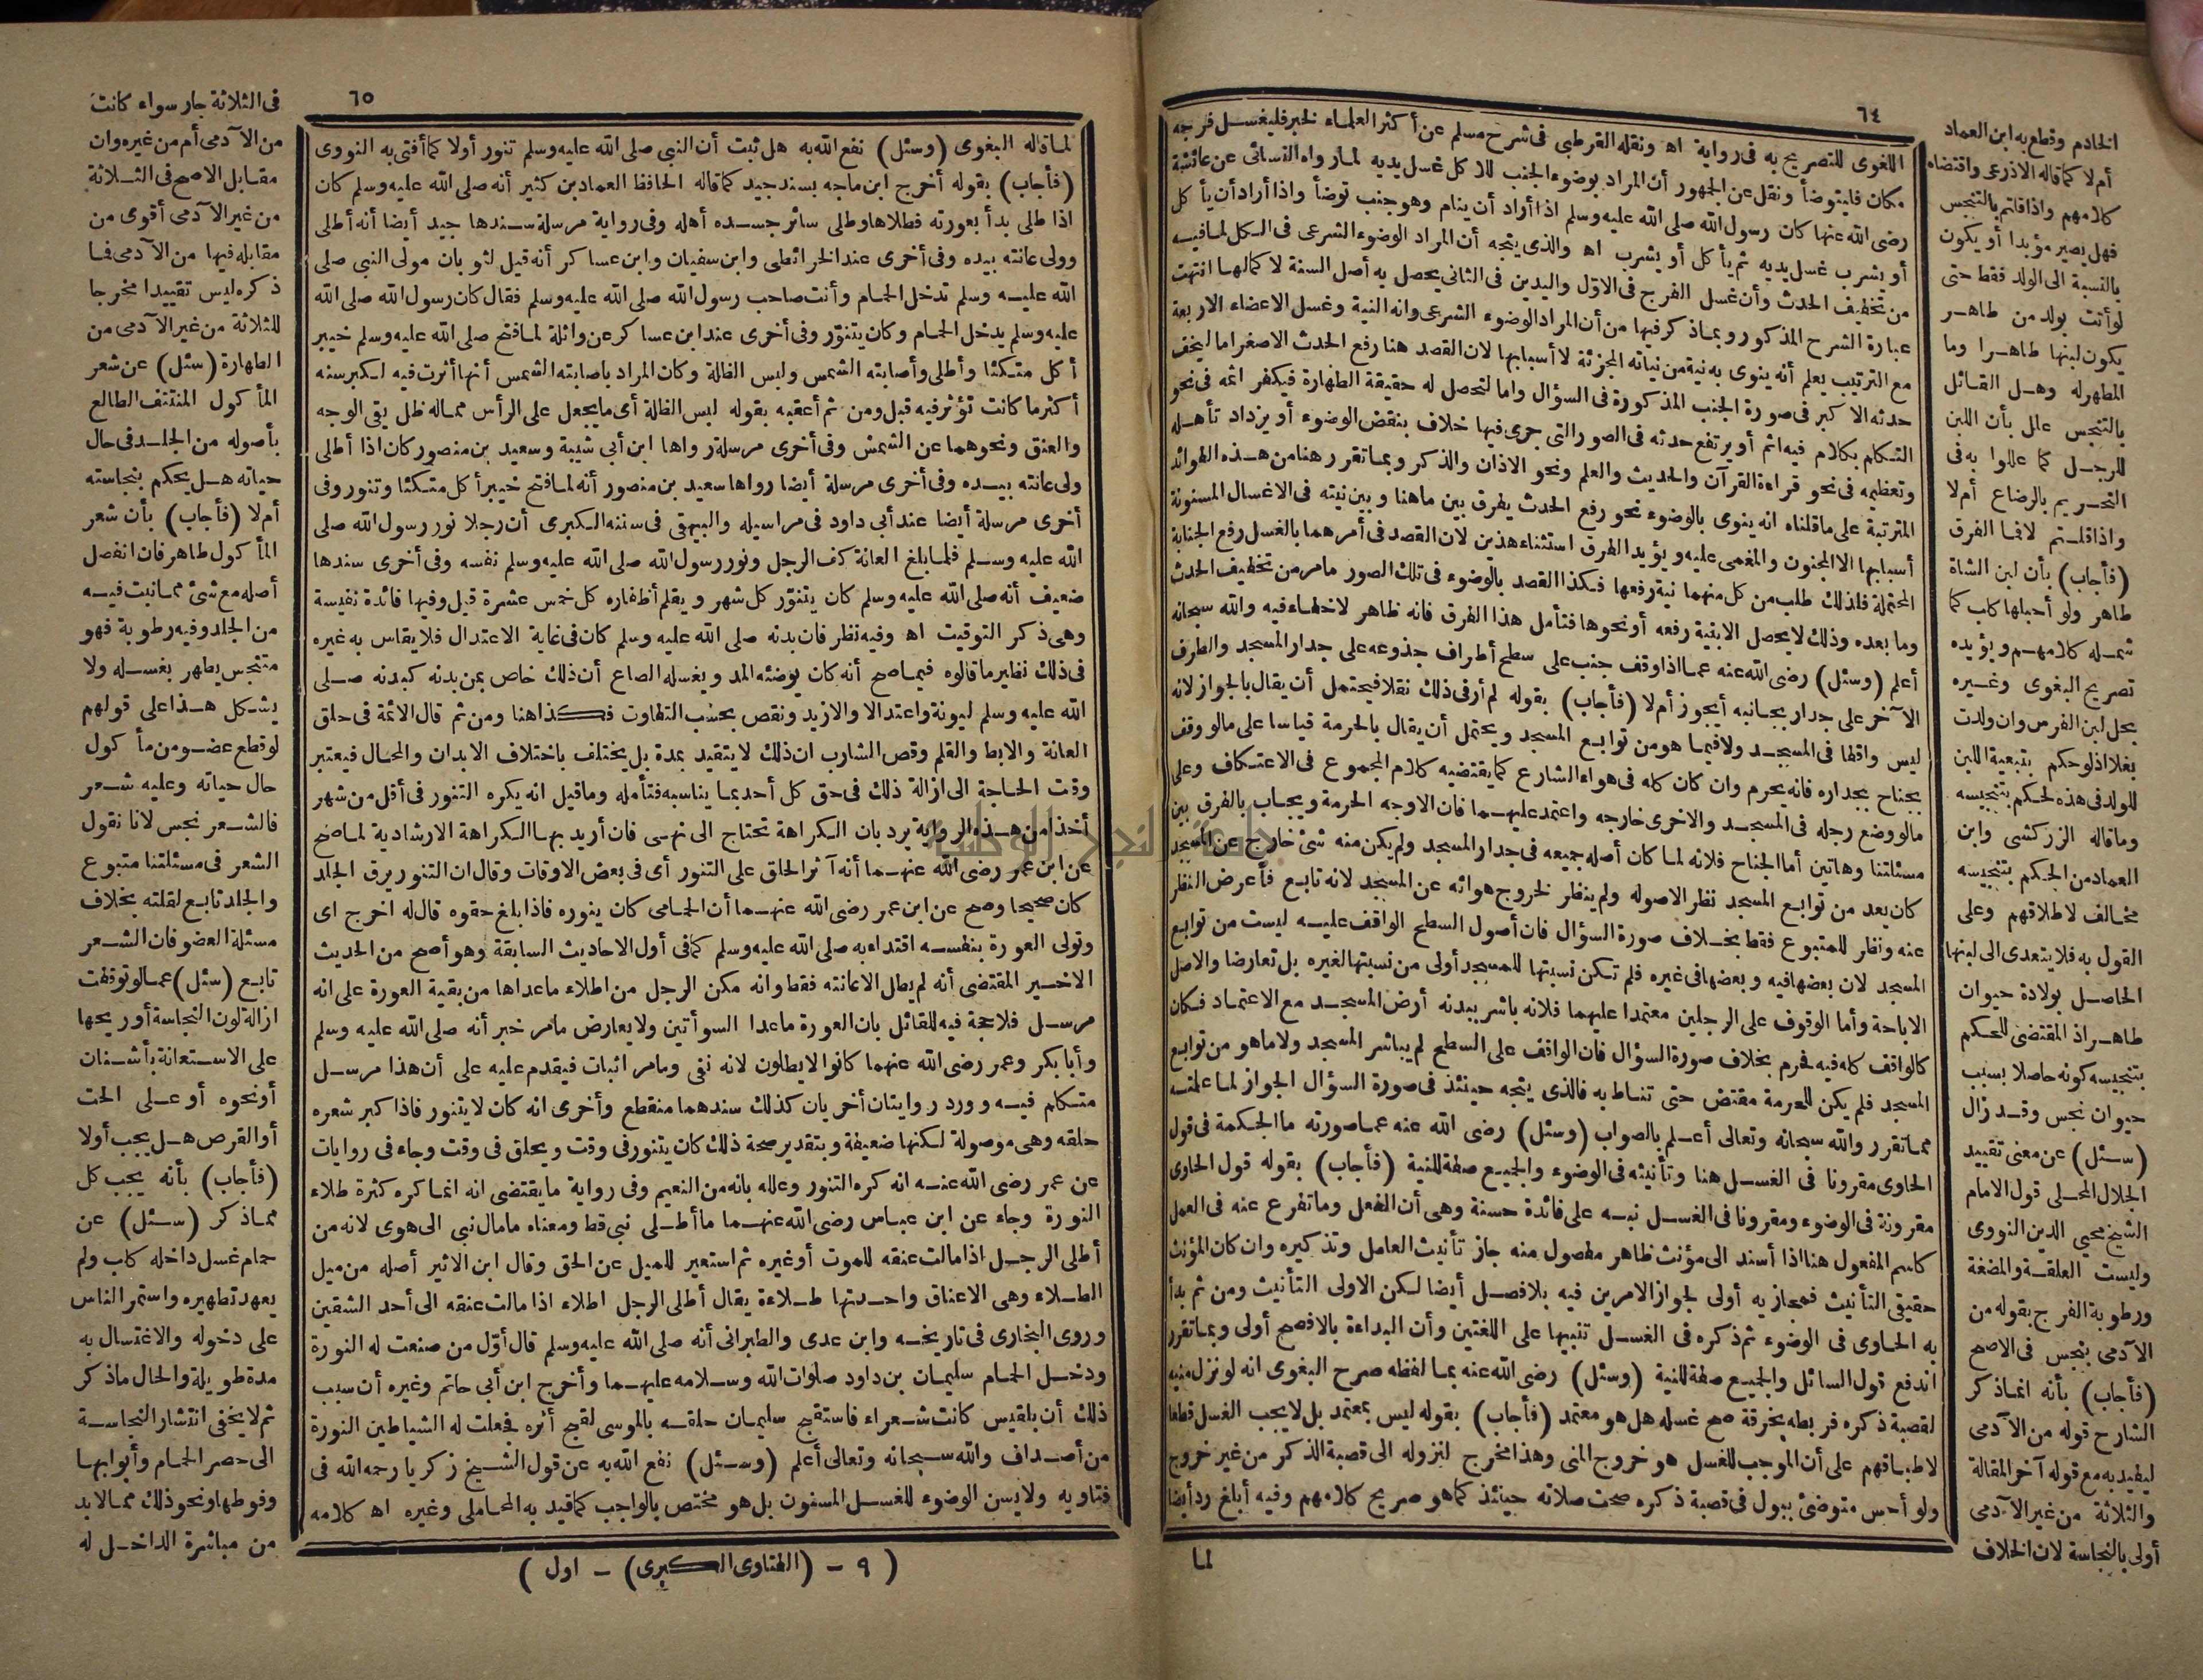 ٦٤
اللغوى للتصريح به فى رواية اه ونقله القرطبى فى شرح مسلم عن أكثر العلماء لخبر فليغسل فرجه
مكان فليتوضأ ونقل عن الجمهور أن المراد بوضوء الجنب للاكل غسل يديه لما رواه النسائى عن عائشة
رضى الله عنها كان رسول الله صلى الله عليه وسلم اذا أراد أن ينام وهو جنب توضأ واذا أراد أن يأكل
أو يشرب غسل يديه ثم يأكل أو يشرب اه والذى يتجه أن المراد الوضوء الشرعى فى الكل لما فيه
من تخفيف الحدث وأن غسل الفرج فى الاول واليدين فى الثانى يحصل به أصل السنة لا كمالها انتهت
عبارة الشرح المذكور وبما ذكر فيها من أن المراد الوضوء الشرعى وانه النية وغسل الاعضاء الاربعة
مع الترتيب يعلم أنه ينوى به نية من نياته المجزئة لا أسبابها لان القصد هنا رفع الحدث الاصغر اما ليخف
حدثه الاكبر فى صورة الجنب المذكورة فى السؤال واما لتحصل له حقيقة الطهارة فيكفر اثمه فى نحو
التكلم بكلام فيه اثم أو يرتفع حدثه فى الصور التى جرى فيها خلاف بنقض الوضوء أو يزداد تأهله
وتعظيمه فى نحو قراءة القرآن والحديث والعلم ونحو الاذان والذكر وبما تقرر هنا من هذه الفوائد
المترتبة على ما قلناه انه ينوى بالوضوء نحو رفع الحدث يفرق بين ما هنا وبين نيته فى الاغسال المسنونة
أسبابها الا المجنون والمغمى عليه ويؤيد الفرق استثناء هذين لان القصد فى أمرهما بالغسل رفع الجنابة
المحتملة فلذلك طلب من كل منهما نية رفعها فكذا القصد بالوضوء فى تلك الصور ما مر من تخفيف الحدث
وما بعده وذلك لا يحصل الا بنية رفعه أو نحوها فتأمل هذا الفرق فانه ظاهر لا خفاء فيه والله سبحانه
أعلم (وسئل) رضى الله عنه عما اذا وقف جنب على سطح أطراف جذوعه على جدار المسجد والطرف
الآخر على جدار بجانبه أيجوز أم لا (فأجاب) بقوله لم أر فى ذلك نقلا فيحتمل أن يقال بالجواز لانه
ليس واقفا فى المسجد ولا فيما هو من توابع المسجد ويحتمل أن يقال بالحرمة قياسا على ما لو وقف
بجناح بجداره فانه يحرم وان كان كله فى هواء الشارع كما يقتضيه كلام المجموع فى الاعتكاف وعلى
ما لو وضع رجله فى المسجد والاخرى خارجه واعتمد عليهما فان الاوجه الحرمة ويجاب بالفرق بين
مسئلتنا وهاتين أما الجناح فلانه لما كان أصله جميعه فى جدار المسجد ولم يكن منه شئ خارج عن المسجد
كان يعد من توابع المسجد نظر الاصوله ولم ينظر لخروج هوائه عن المسجد لانه تابع فأعرض النظر
عنه ونظر للمتبوع فقط بخلاف صورة السؤال فان أصول السطح الواقف عليه ليست من توابع
المسجد لان بعضها فيه وبعضها فى غيره فلم تكن نسبتها للمسجد أولى من نسبتها لغيره بل تعارضا والاصل
الاباحة وأما الوقوف على الرجلين معتمدا عليهما فلانه باشر ببدنه أرض المسجد مع الاعتماد فكان
كالواقف كله فيه فحرم بخلاف صورة السؤال فان الواقف على السطح لم يباشر المسجد ولا ما هو من توابع
المسجد فلم يكن للحرمة مقتض حتى تناط به فالذى يتجه حينئذ فى صورة السؤال الجواز لما علمته
مما تقرر والله سبحانه وتعالى أعلم بالصواب (وسئل) رضى الله عنه عما صورته ما الحكمة فى قول
الحاوى مقرونا فى الغسل هنا وتأنيثه فى الوضوء والجميع صفة للنية (فأجاب) بقوله قول الحاوى
مقرونة فى الوضوء ومقرونا فى الغسل نبه على فائدة حسنة وهى أن الفعل وما تفرع عنه فى العمل
كاسم المفعول هنا اذا أسند الى مؤنث ظاهر مفصول منه جاز تأنيث العامل وتذكيره وان كان المؤنث
حقيقى التأنيث فمجازيه أولى لجواز الامرين فيه بلا فصل أيضا لكن الاولى التأنيث ومن ثم بدأ
به الحاوى فى الوضوء ثم ذكره فى الغسل تنبيها على اللغتين وأن البداءة بالافصح أولى وبما تقرر
اندفع قول السائل والجميع صفة للنية (وسئل) رضى الله عنه بما لفظه صرح البغوى انه لو نزل منيه
لقصبة ذكره فربطه بخرقة صح غسله هل هو معتمد (فأجاب) بقوله ليس بمعتمد بل لا يجب الغسل قطعا
لاطباقهم على أن الموجب للغسل هو خروج المنى وهذا مخرج لنزوله الى قصبة الذكر من غير خروج
ولو أحس متوضئ ببول فى قصبة ذكره صحت صلاته حينئذ كما هو صريح كلامهم وفيه أبلغ رد أيضا
لما
الخادم وقطع به ابن العماد
أم لا كما قاله الاذرعى واقتضاه
كلامهم واذا قلتم بالتنجس
فهل يصير مؤبدا أو يكون
بالنسبة الى الولد فقط حتى
لو أتت بولد من طاهر
يكون لبنها طاهرا وما
المطهر له وهل القائل
بالتنجس علل بأن اللبن
للرجل كما عللوا به فى
التحريم بالرضاع أم لا
واذا قلتم لا فما الفرق
(فأجاب) بأن لبن الشاة
طاهر ولو أحبلها كلب كما
شمله كلامهم ويؤيده
تصريح البغوى وغيره
بحل لبن الفرس وان ولدت
بغلا اذ لو حكم بتبعية اللبن
للولد فى هذه لحكم بتنجيسه
وما قاله الزركشى وابن
العماد من الحكم بتنجيسه
مخالف لاطلاقهم وعلى
القول به فلا يتعدى الى لبنها
الحاصل بولادة حيوان
طاهر اذ المقتضى للحكم
بتنجيسه كونه حاصلا بسبب
حيوان نجس وقد زال
(سئل) عن معنى تقييد
الجلال المحلى قول الامام
الشيخ محيى الدين النووى
وليست العلقة والمضغة
ورطوبة الفرج بقوله من
الآدمى بنجس فى الاصح
(فأجاب) بأنه انما ذكر
الشارح قوله من الآدمى
ليفيد به مع قوله آخر المقالة
والثلاثة من غير الآدمى
أولى بالنجاسة لان الخلاف
٦٥
لما قاله البغوى (وسئل) نفع الله به هل ثبت أن النبى صلى الله عليه وسلم تنور أولا كما أفتى به النووى
(فأجاب) بقوله أخرج ابن ماجه بسند جيد كما قاله الحافظ العماد بن كثير أنه صلى الله عليه وسلم كان
اذا طلى بدأ بعورته فطلاها وطلى سائر جسده أهله وفى رواية مرسلة سندها جيد أيضا أنه أطلى
وولى عانته بيده وفى أخرى عند الخرائطى وابن سفيان وابن عساكر أنه قيل لثوبان مولى النبى صلى
الله عليه وسلم تدخل الحمام وأنت صاحب رسول الله صلى الله عليه وسلم فقال كان رسول الله صلى الله
عليه وسلم يدخل الحمام وكان يتنوّر وفى أخرى عند ابن عساكر عن واثلة لما فتح صلى الله عليه وسلم خيبر
أكل متكئا وأطلى وأصابته الشمس ولبس الظلة وكان المراد باصابته الشمس أنها أثرت فيه لكبر سنه
أكثر ما كانت تؤثر فيه قبل ومن ثم أعقبه بقوله لبس الظلة أى ما يجعل على الرأس مما له ظل يقى الوجه
والعنق ونحوهما عن الشمس وفى أخرى مرسلة رواها ابن أبى شيبة وسعيد بن منصور كان اذا أطلى
ولى عانته بيده وفى أخرى مرسلة أيضا رواها سعيد بن منصور أنه لما فتح خيبر أكل متكئا وتنور وفى
أخرى مرسلة أيضا عند أبى داود فى مراسيله والبيهقى فى سننه الكبرى أن رجلا نور رسول الله صلى
الله عليه وسلم فلما بلغ العانة كف الرجل ونور رسول الله صلى الله عليه وسلم نفسه وفى أخرى سندها
ضعيف أنه صلى الله عليه وسلم كان يتنوّر كل شهر ويقلم أظفاره كل خمس عشرة قيل وفيها فائدة نفيسة
وهى ذكر التوقيت اه وفيه نظر فان بدنه صلى الله عليه وسلم كان فى غاية الاعتدال فلا يقاس به غيره
فى ذلك نظير ما قالوه فيما صح أنه كان يوضئه المد ويغسله الصاع أن ذلك خاص بمن بدنه كبدنه صلى
الله عليه وسلم ليونة واعتدالا والا زيد ونقص بحسب التفاوت فكذا هنا ومن ثم قال الائمة فى حلق
العانة والابط والقلم وقص الشارب ان ذلك لا يتقيد بمدة بل يختلف باختلاف الابدان والمحال فيعتبر
وقت الحاجة الى ازالة ذلك فى حق كل أحد بما يناسبه فتأمله وما قيل انه يكره التنور فى أقل من شهر
أخذا من هذه الرواية يرد بان الكراهة تحتاج الى نهى فان أريد بها الكراهة الارشادية لما صح
عن ابن عمر رضى الله عنهما أنه آثر الحلق على التنور أى فى بعض الاوقات وقال ان التنور يرق الجلد
كان صحيحا وصح عن ابن عمر رضى الله عنهما أن الحمامى كان ينوره فاذا بلغ حقوه قال له اخرج اى
وتولى العورة بنفسه اقتداء به صلى الله عليه وسلم كما فى أول الاحاديث السابقة وهو أصح من الحديث
الاخير المقتضى أنه لم يطل الا عانته فقط وانه مكن الرجل من اطلاء ما عداها من بقية العورة على انه
مرسل فلا حجة فيه للقائل بان العورة ما عدا السوأتين ولا يعارض ما مر خبر أنه صلى الله عليه وسلم
وأبا بكر وعمر رضى الله عنهما كانوا لا يطلون لانه نفى وما مر اثبات فيقدم عليه على أن هذا مرسل
متكلم فيه وورد روايتان أخريان كذلك سندهما منقطع وأخرى انه كان لا يتنور فاذا كبر شعره
حلقه وهى موصولة لكنها ضعيفة وبتقدير صحة ذلك كان يتنور فى وقت ويحلق فى وقت وجاء فى روايات
عن عمر رضى الله عنه انه كره التنور وعلله بانه من النعيم وفى رواية ما يقتضى انه انما كره كثرة طلاء
النورة وجاء عن ابن عباس رضى الله عنهما ما أطلى نبى قط ومعناه ما مال نبى الى هوى لانه من
أطلى الرجل اذا مالت عنقه للموت أو غيره ثم استعير للميل عن الحق وقال ابن الاثير أصله من ميل
الطلاء وهى الاعناق واحدتها طلاءة يقال أطلى الرجل اطلاء اذا مالت عنقه الى أحد الشقين
وروى البخارى فى تاريخه وابن عدى والطبرانى أنه صلى الله عليه وسلم قال أوّل من صنعت له النورة
ودخل الحمام سليمان بن داود صلوات الله وسلامه عليهما وأخرج ابن أبى حاتم وغيره أن سبب
ذلك أن بلقيس كانت شعراء فاستقبح سليمان حلقه بالموسى لقبح أثره فجعلت له الشياطين النورة
من أصداف والله سبحانه وتعالى أعلم (وسئل) نفع الله به عن قول الشيخ زكريا رحمه الله فى
فتاويه ولا يسن الوضوء للغسل المسنون بل هو مختص بالواجب كما قيد به المحاملى وغيره اه كلامه
(٩ – (الفتاوى الكبرى) – اول)
فى الثلاثة جار سواء كانت
من الآدمى أم من غيره وان
مقابل الاصح فى الثلاثة
من غير الآدمى أقوى من
مقابله فيها من الآدمى فما
ذكره ليس تقييدا مخرجا
للثلاثة من غير الآدمى من
الطهارة (سئل) عن شعر
المأكول المنتتف الطالع
بأصوله من الجلد فى حال
حياته هل يحكم بنجاسته
أم لا (فأجاب) بأن شعر
المأكول طاهر فان انفصل
أصله مع شئ مما نبت فيه
من الجلد وفيه رطوبة فهو
متنجس يطهر بغسله ولا
يشكل هذا على قولهم
لو قطع عضو من مأكول
حال حياته وعليه شعر
فالشعر نجس لانا نقول
الشعر فى مسئلتنا متبوع
والجلد تابع لقلته بخلاف
مسئلة العضو فان الشعر
تابع (سئل) عما لو توقفت
ازالة لون النجاسة أو ريحها
على الاستعانة بأشنان
أو نحوه أو على الحت
أو القرص هل يجب أولا
(فأجاب) بأنه يجب كل
مما ذكر (سئل) عن
حمام غسل داخله كلب ولم
يعهد تطهيره واستمر الناس
على دخوله والاغتسال به
مدة طويلة والحال ما ذكر
ثم لا يخفى انتشار النجاسة
الى حصر الحمام وأبوابها
وفوطها ونحو ذلك مما لا بد
من مباشرة الداخل له